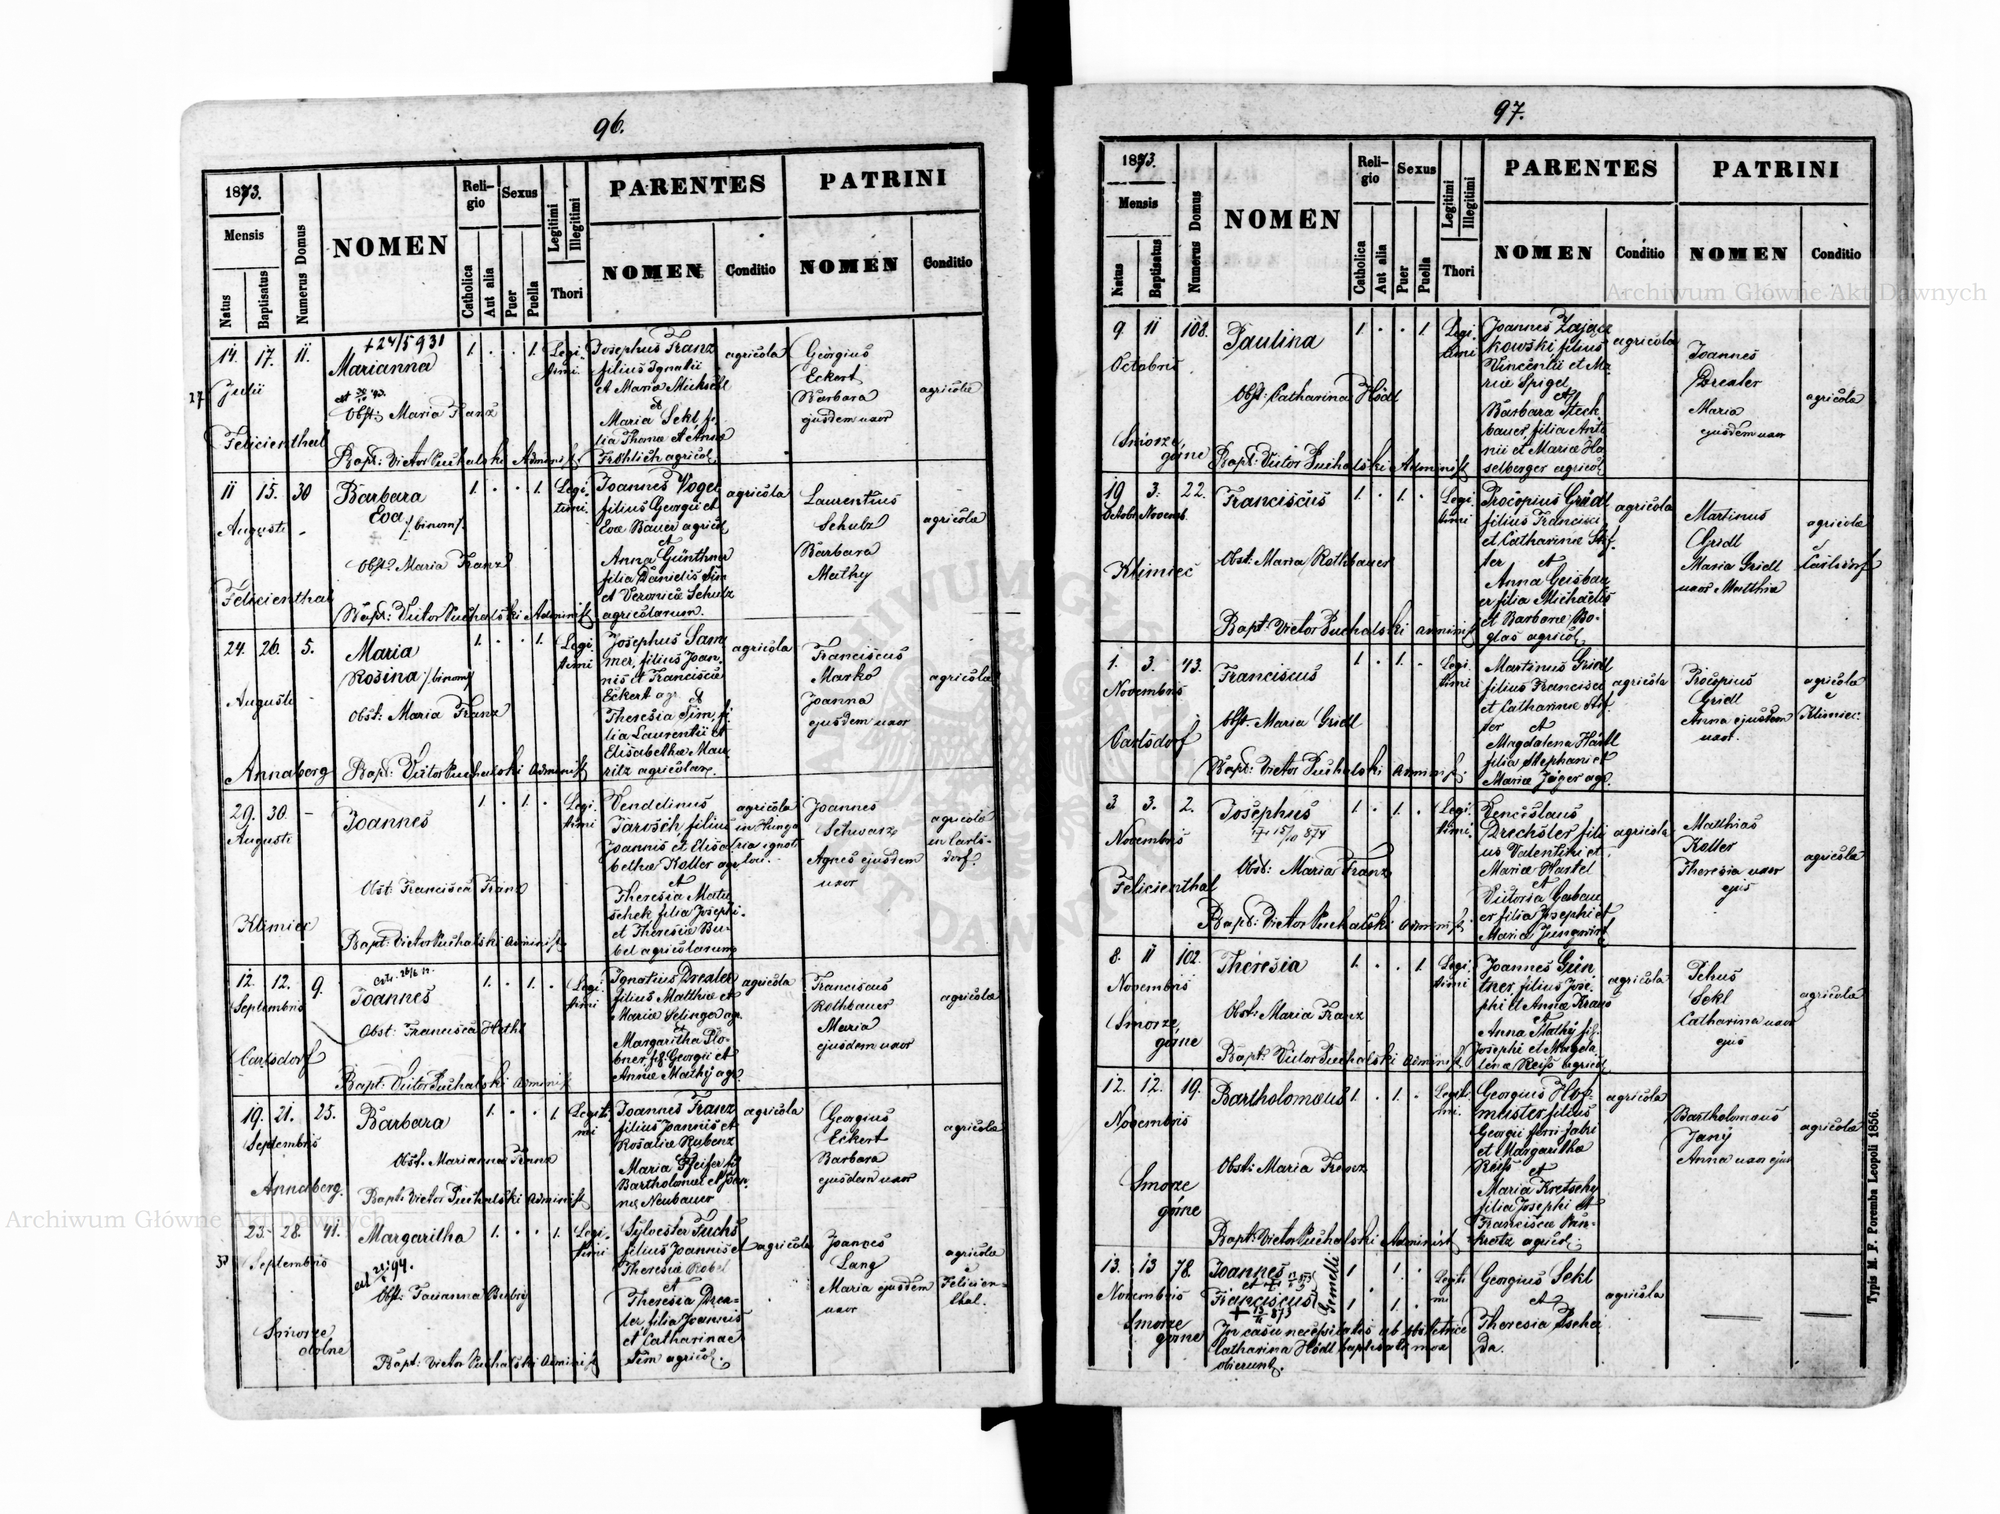 96.
1873.
Mensis
Natus
Baptisatus
Numerus Domus
NOMEN
Reli-
gio
Catholica
Aut alia
Sexus
Puer
Puella
Legitimi
Illegitimi
Thori
PARENTES
NOMEN
Conditio
PATRINI
NOMEN
Conditio
14. 17. 11.
Julii
17
Felicienthal
+ 24/5 931
Marianna
Obst: Maria Franz
Bapt: Victor Puchalski Administ
1. . . 1. Legi-
timi.
Josephus Franz
filius Ignatii
et Maria Michichl
et
Maria Sekl fi-
lia Thomæ et Annæ
Fröhlich agricol.
agricola
Georgius
Eckert
Barbara
ejusdem uxor
agricolæ
11 15. 30
Augusti
Felicienthal
Barbara
Eva /binom/.
Obst: Maria Franz
Bapt: Victor Puchalski Administ
1. . . 1. Legi-
timi.
Joannes Vogel
filius Georgii et
Evæ Bauer agricol
et
Anna Günthner
filia Danielis Sim
et Veronicæ Schulz
agricolarum.
agricola
Laurentius
Schulz
Barbara
Mathy
agricolæ
24. 26. 5.
Augusti
Annaberg
Maria
Rosina /binom/
Obst: Maria Franz
Bapt: Victor Puchalski Administ
1. . . 1. Legi
timi
Josephus Sam
mer, filius Joan-
nis et Franciscæ
Eckert agr. et
Theresia Sim, fi-
lia Laurentii et
Elisabethæ Mau
ritz agricolar.
agricola
Franciscus
Marko
Joanna
ejusdem uxor
agricolæ
29. 30. -
Augusti
Klimiec
Joannes
Obst: Francisca Franz
Bapt: Victor Puchalski Administ.
1. . 1. . Legi.
timi
Vendelinus
Jarosch filius
Joannis et Elisa-
bethæ Koller agr
et
Theresia Matu
schek filia Josephi
et Theresiæ Bu-
bel agricolarum
agricola
in Hunga
ria ignot
Joannes
Schwarz
Agnes ejusdem
uxor
agricolæ
in Carls-
dorf.
12. 12. 9.
Septembris
Carlsdorf
Joannes
Obst: Francisca Hethl
Bapt: Victor Puchalski Administ
1. . 1. . Legi.
timi
Ignatius Drexler
filius Matthiæ et
Mariæ Selinger agr.
et
Margaritha Plo-
bner fil. Georgii et
Annæ Mathy agr.
agricola
Franciscus
Rothbauer
Maria
ejusdem uxor
agricolæ
19. 21. 25.
Septembris
Annaberg.
Barbara
Obst. Marianna Franz
Bapt: Victor Puchalski Administ
1. . . 1. Legiti
mi
Joannes Franz
filius Joannis et
Rosaliæ Rubenz
et
Maria Pfeifer fil
Bartholomæi et Joan-
næ Neubauer
agricola
Georgius
Eckert
Barbara
ejusdem uxor
agricolæ
25. 28. 41.
Septembris
Smorze
dolne
Margaritha
Bapt: Victor Puchalski Administ
1. . . 1. Legi-
timi
Sylvester Fuchs
filius Joannis et
Theresiæ Robel
et
Theresia Drex-
ler, filia Joannis
et Catharinae
Sim agricol.
agricola
Joannes
Lang
Maria ejusdem
uxor
agricolæ
e
Felicien-
thal.
97.
1873.
Mensis
Natus
Baptisatus
Numerus Domus
NOMEN
Reli-
gio
Catholica
Aut alia
Sexus
Puer
Puella
Legitimi
Illegitimi
Thori
PARENTES
NOMEN
Conditio
PATRINI
NOMEN
Conditio
9. 11 108.
Octobris
Smorze
górne
Paulina
Obst: Catharina Hödl
Bapt: Victor Puchalski Administ
1 . . 1. Legi.
timi
Joannes Zającz
kowski, filius
Vincentii et Ma-
riæ Spigel
et
Barbara Steck-
bauer, filia Anto
nii et Mariæ Ha-
selberger agricol
agricola
Joannes
Drexler
Maria
ejusdem uxor
agricolæ
19 3. 22.
Octobr. Novemb.
Klimiec
Franciscus
Obst: Maria Rothbauer
Bapt: Victor Puchalski Administ
1. . 1. . Legi.
timi
Procopius Gridl
filius Francisci
et Catharinæ Stif-
ter et
Anna Geisbau
er filia Michaelis
et Barbaræ Bo-
glas agricol.
agricola
Martinus
Gridl
Maria Gridl
uxor Matthiæ
agricolæ
e
Carlsdorf
1. 3. 43.
Novembris
Carlsdorf
Franciscus
Obst. Maria Gridl
Bapt: Victor Puchalski Administ.
1. . 1. . Legi
timi
Martinus Gridl
filius Francisci
et Catharinæ Stif
ter et
Magdalena Hartl
filia Stephani et
Mariæ Jäger agr.
agricola
Procopius
Gridl
Anna ejusdem
uxor.
agricolæ
e
Klimiec.
3. 3. 2.
Novembris
Felicienthal
Josephus
Obst: Maria Franz
Bapt: Victor Puchalski Administ.
1. . 1. . Legi
timi.
Venceslaus
Drechsler fili
us Valentini et
Mariæ Hartel
et
Victoria Gabau
er filia Josephi et
Mariæ Jungwirt
agricola
Matthias
Koller
Theresia uxor
ejus
agricolæ
8. 11 102.
Novembris
Smorze,
górne
Theresia
Obst: Maria Franz
Bapt: Victor Puchalski Administ
1. . . 1 Legi-
timi
Joannes Gün
tner, filius Jose-
phi et Annæ Kraus
et
Anna Mathy fil.
Josephi et Magda
lenæ Reiss agricol.
agricola
Pehus
Sekl
Catharina uxor
ejus
agricolæ
12. 12. 19.
Novembris
Smorze
górne
Bartholomæus
Obst: Maria Franz
Bapt: Victor Puchalski Administ
1. . 1. . Legiti
mi.
Georgius Hof-
meister, filius
Georgii ferri-fabri
et Margaritha
Reiss
et
Maria Kretschy
filia Josephi et
Franciscæ Pan-
kratz agricol.
agricola
Bartholomæus
Jany
Anna uxor ejus
agricolæ
13. 13 78.
Novembris
Smorze
górne
Joannes
et
Franciscus
Gemelli
In casu necessitatis ab obstetrice
Catharina Hödl baptisati mox
obierunt.
1 . 1. . Legiti
mi
1 . 1. .
Georgius Sekl
et
Theresia Pschei
da.
agricola
Typis M. F. Poremba Leopoli 1856.
Archiwum Główne Akt Dawnych
Archiwum Główne Akt Dawnych